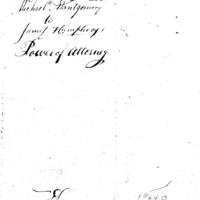 Michael Montgomery
to
James Humphreys
Power of Attorney